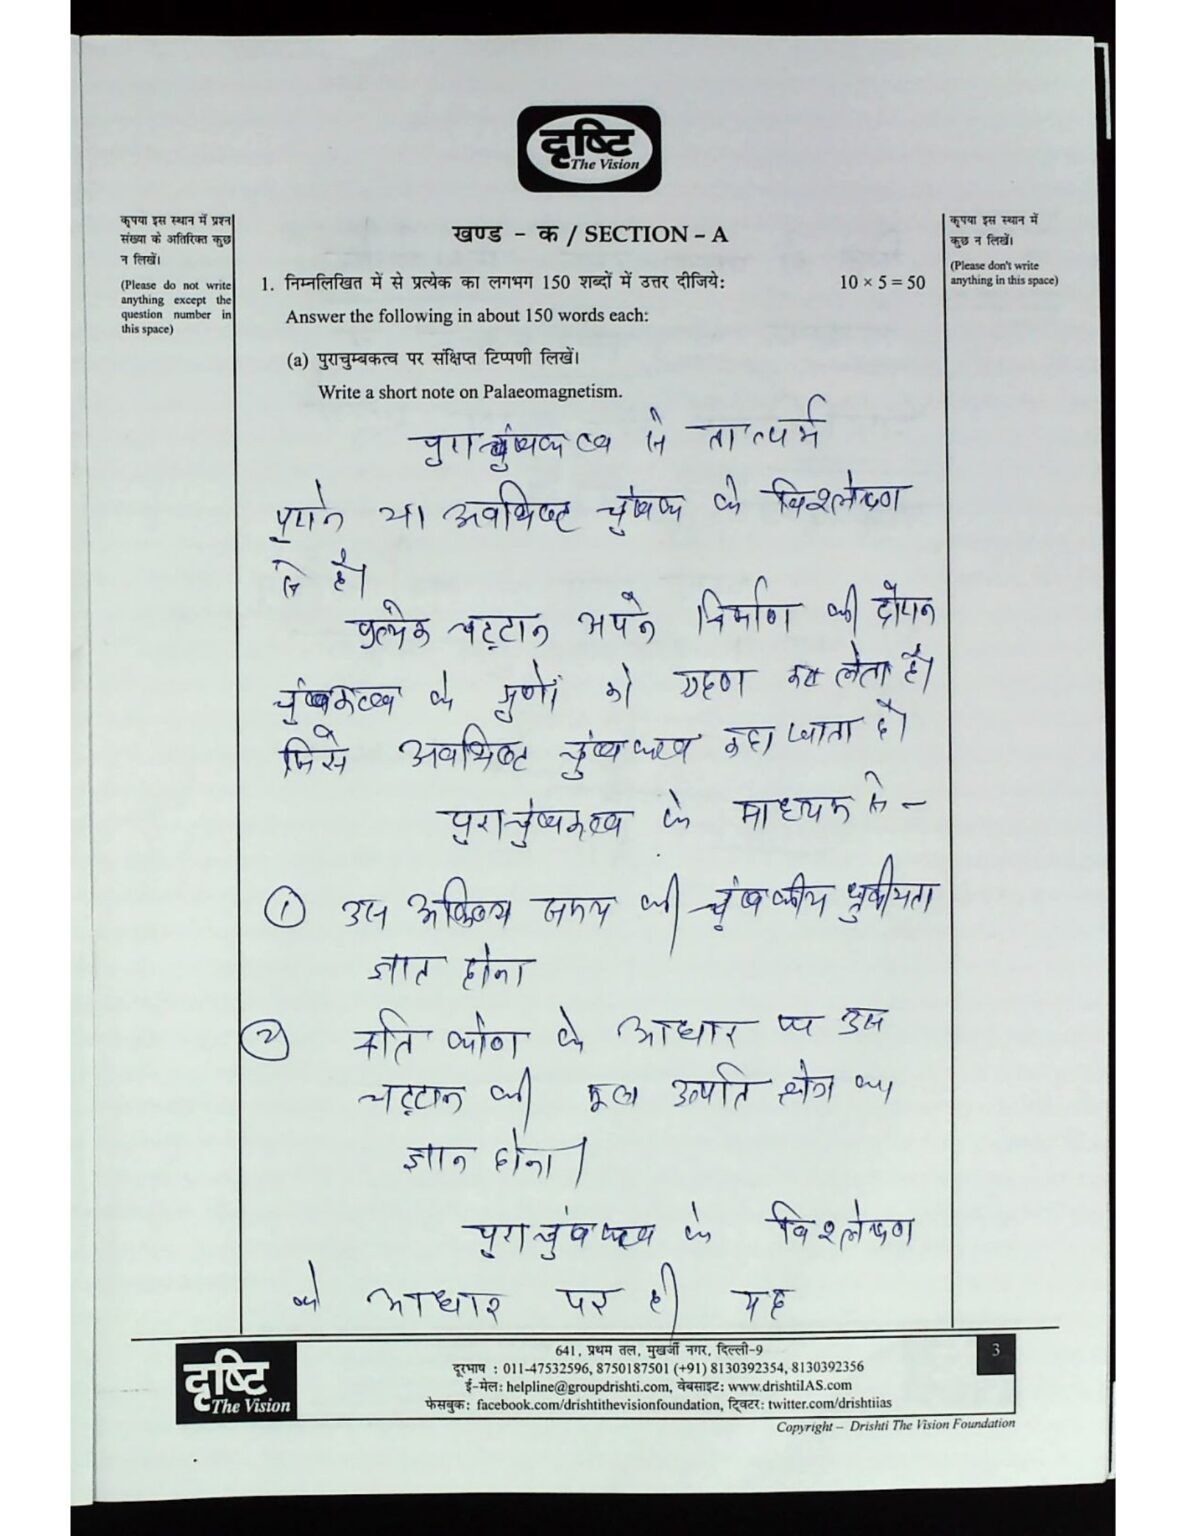 दृष्टि
The Vision
कृपया इस स्थान में प्रश्न
संख्या के अतिरिक्त कुछ
न लिखें।
(Please do not write
anything except the
question number in
this space)
खण्ड - क / SECTION - A
1. निम्नलिखित में से प्रत्येक का लगभग 150 शब्दों में उत्तर दीजिये: 10 × 5 = 50
Answer the following in about 150 words each:
(a) पुराचुम्बकत्व पर संक्षिप्त टिप्पणी लिखें।
Write a short note on Palaeomagnetism.
कृपया इस स्थान में
कुछ न लिखें।
(Please don't write
anything in this space)
पुराचुंबकत्व से तात्पर्य
पुराने या अवशिष्ट चुंबक के विश्लेषण
से है।
प्रत्येक चट्टान अपने निर्माण की दौरान
चुंबकत्व के गुणों को ग्रहण कर लेता है।
जिसे अवशिष्ट चुंबकत्व कहा जाता है।
पुराचुंबकत्व के माध्यम से -
① उस समय की चुंबकीय ध्रुवीयता
ज्ञात होना
② नति कोण के आधार पर उस
चट्टान की मूल उत्पति क्षेत्र का
ज्ञान होना।
पुराचुंबकत्व के विश्लेषण
के आधार पर ही यह
दृष्टि
The Vision
641, प्रथम तल, मुखर्जी नगर, दिल्ली-9
दूरभाष : 011-47532596, 8750187501 (+91) 8130392354, 8130392356
ई-मेल: helpline@groupdrishti.com, वेबसाइट: www.drishtiIAS.com
फेसबुक: facebook.com/drishtithevisionfoundation, ट्विटर: twitter.com/drishtiias
3
Copyright – Drishti The Vision Foundation